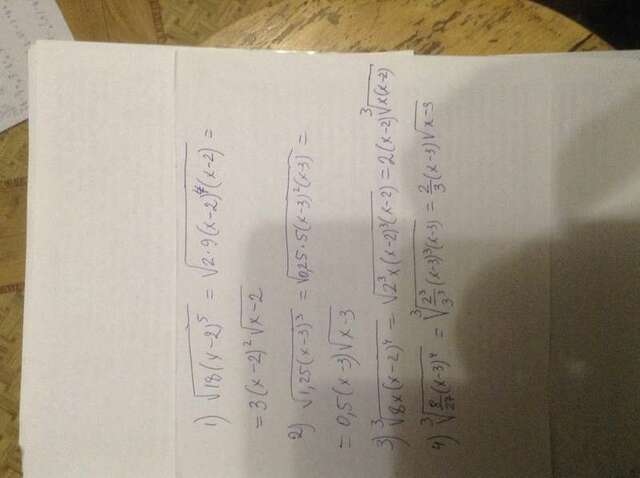 1) √18(x-2)⁵ = √2·9(x-2)⁴(x-2) =
= 3(x-2)² √x-2
2) √1,25(x-3)³ = √0,25·5(x-3)²(x-3) =
= 0,5(x-3)√x-3
3) ³√8x(x-2)⁴ = √2³x(x-2)³(x-2) = 2(x-2)³√x(x-2)
4) ³√8/27(x-3)⁴ = ³√2³/3³(x-3)³(x-3) = 2/3(x-3)√x-3